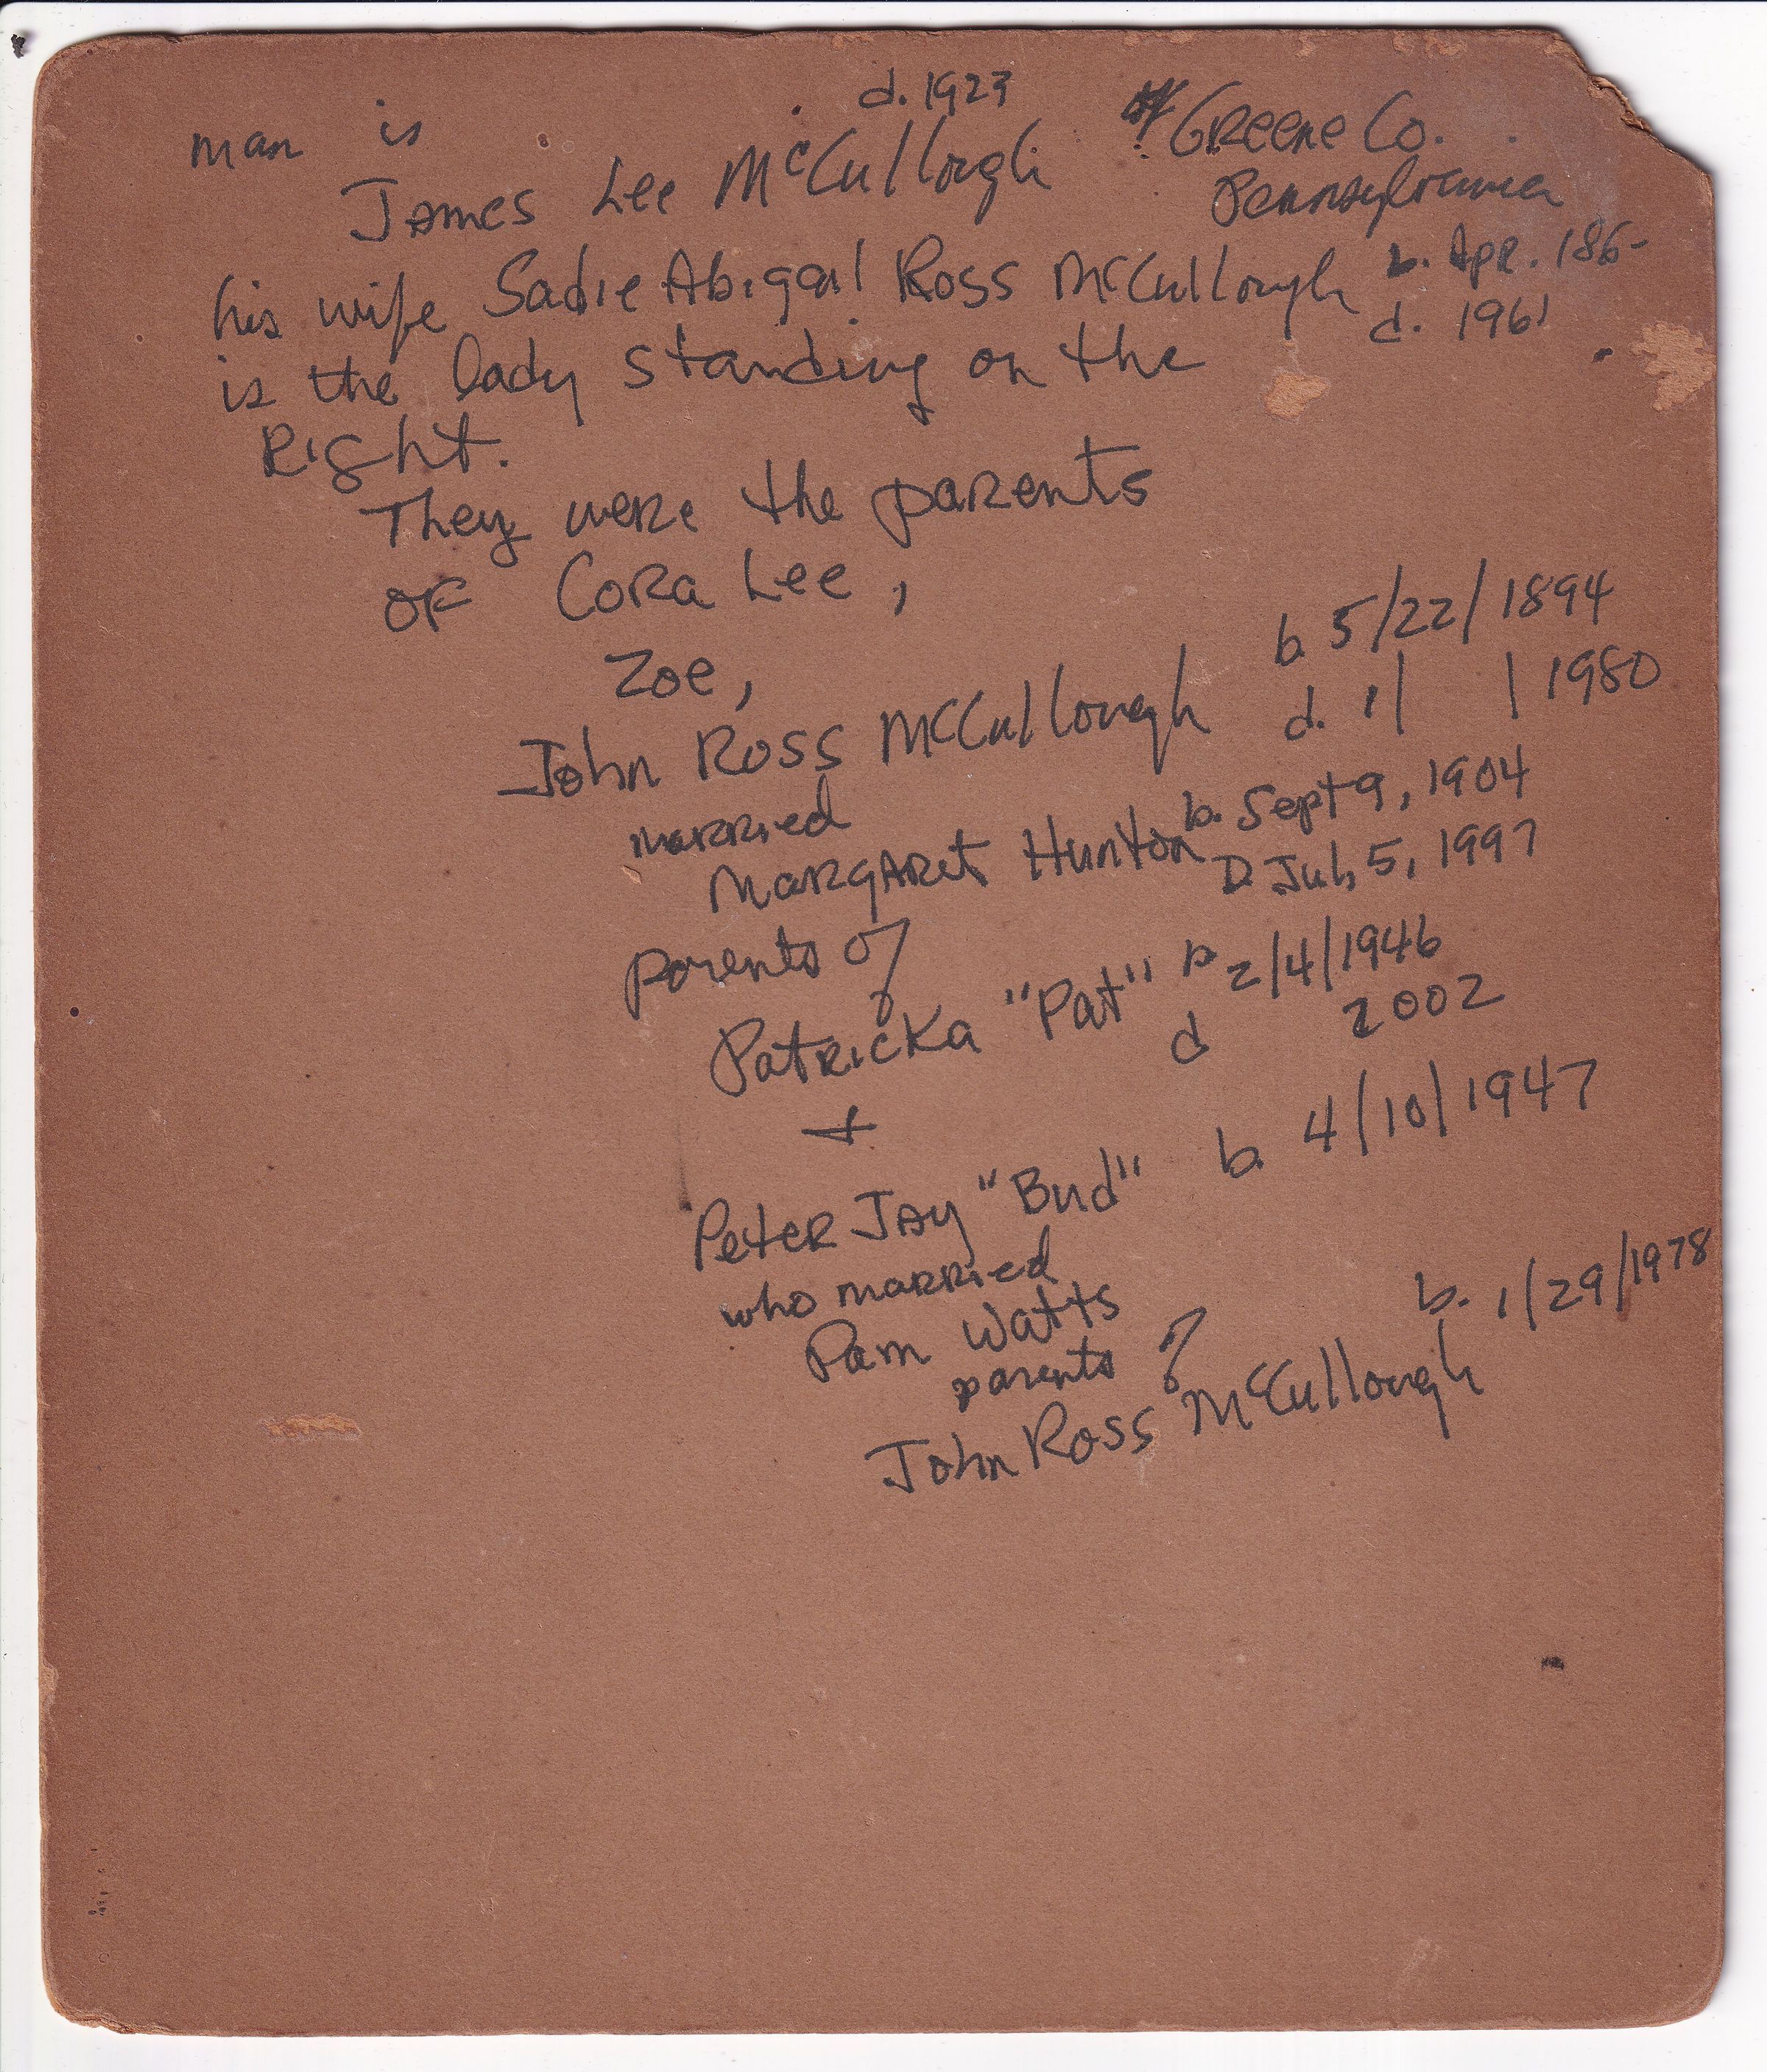 man is
d. 1923
James Lee McCullough
of Greene Co.
Pennsylvania
his wife Sadie Abigail Ross McCullough
b. Apr. 186-
d. 1961
is the lady standing on the
Right.
They were the parents
of Cora Lee,
Zoe,
John Ross McCullough
b. 5/22/1894
d. 11/ /1980
married
Margaret Hunton
b. Sept 9, 1904
D. July 5, 1997
parents of
Patricka "Pat"
b 2/4/1946
d 2002
+
Peter Jay "Bud" b. 4/10/1947
who married
Pam Watts
parents of
John Ross McCullough
b. 1/29/1978